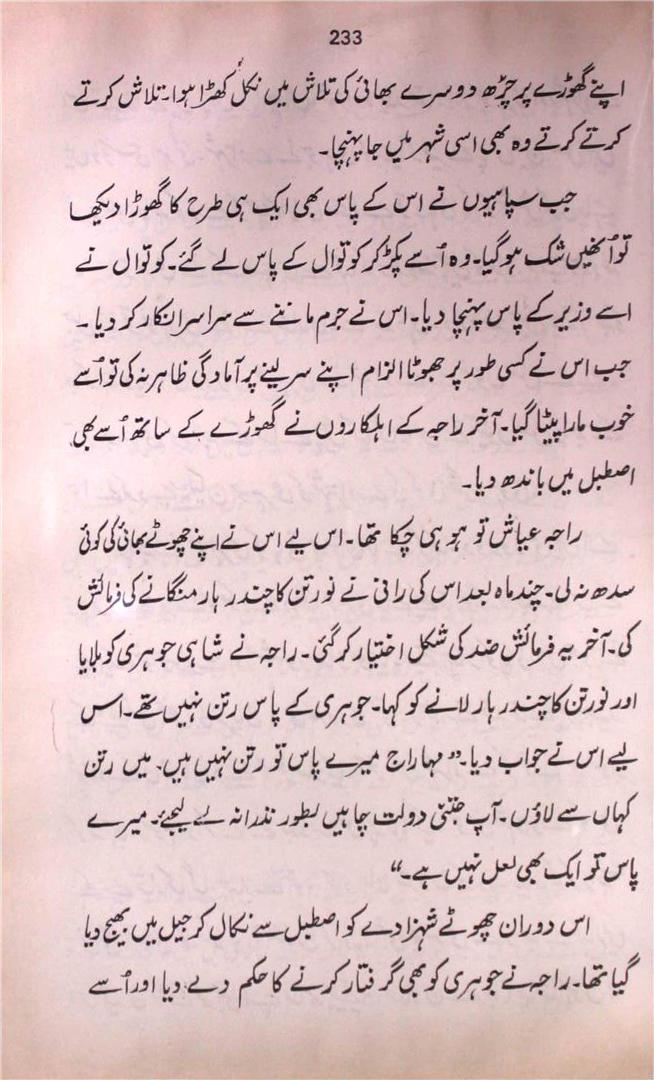 233
اپنے گھوڑے پر چڑھ دوسرے بھائی کی تلاش میں نکل کھڑا ہوا۔ تلاش کرتے
کرتے کرتے وہ بھی اسی شہر میں جا پہنچا۔
جب سپاہیوں نے اس کے پاس بھی ایک ہی طرح کا گھوڑا دیکھا
تو اُنھیں شک ہو گیا۔ وہ اُسے پکڑ کر کوتوال کے پاس لے گئے۔ کوتوال نے
اسے وزیر کے پاس پہنچا دیا۔ اس نے جرم ماننے سے سراسر انکار کر دیا۔
جب اس نے کسی طور پر جھوٹا الزام اپنے سر لینے پر آمادگی ظاہر نہ کی تو اُسے
خوب مارا پیٹا گیا۔ آخر راجہ کے اہلکاروں نے گھوڑے کے ساتھ اُسے بھی
اصطبل میں باندھ دیا۔
راجہ عیاش تو ہو ہی چکا تھا۔ اس لیے اس نے اپنے چھوٹے بھائی کی کوئی
سدھ نہ لی۔ چند ماہ بعد اس کی رانی نے نورتن کا چندر ہار منگانے کی فرمائش
کی۔ آخر یہ فرمائش ضد کی شکل اختیار کر گئی۔ راجہ نے شاہی جوہری کو بلایا
اور نورتن کا چندر ہار لانے کو کہا۔ جوہری کے پاس رتن نہیں تھے۔ اس
لیے اس نے جواب دیا۔ "مہاراج میرے پاس تو رتن نہیں ہیں۔ میں رتن
کہاں سے لاؤں۔ آپ جتنی دولت چاہیں بطور نذرانہ لے لیجئے۔ میرے
پاس تو ایک بھی لعل نہیں ہے۔"
اس دوران چھوٹے شہزادے کو اصطبل سے نکال کر جیل میں بھیج دیا
گیا تھا۔ راجہ نے جوہری کو بھی گرفتار کرنے کا حکم دے دیا اور اُسے